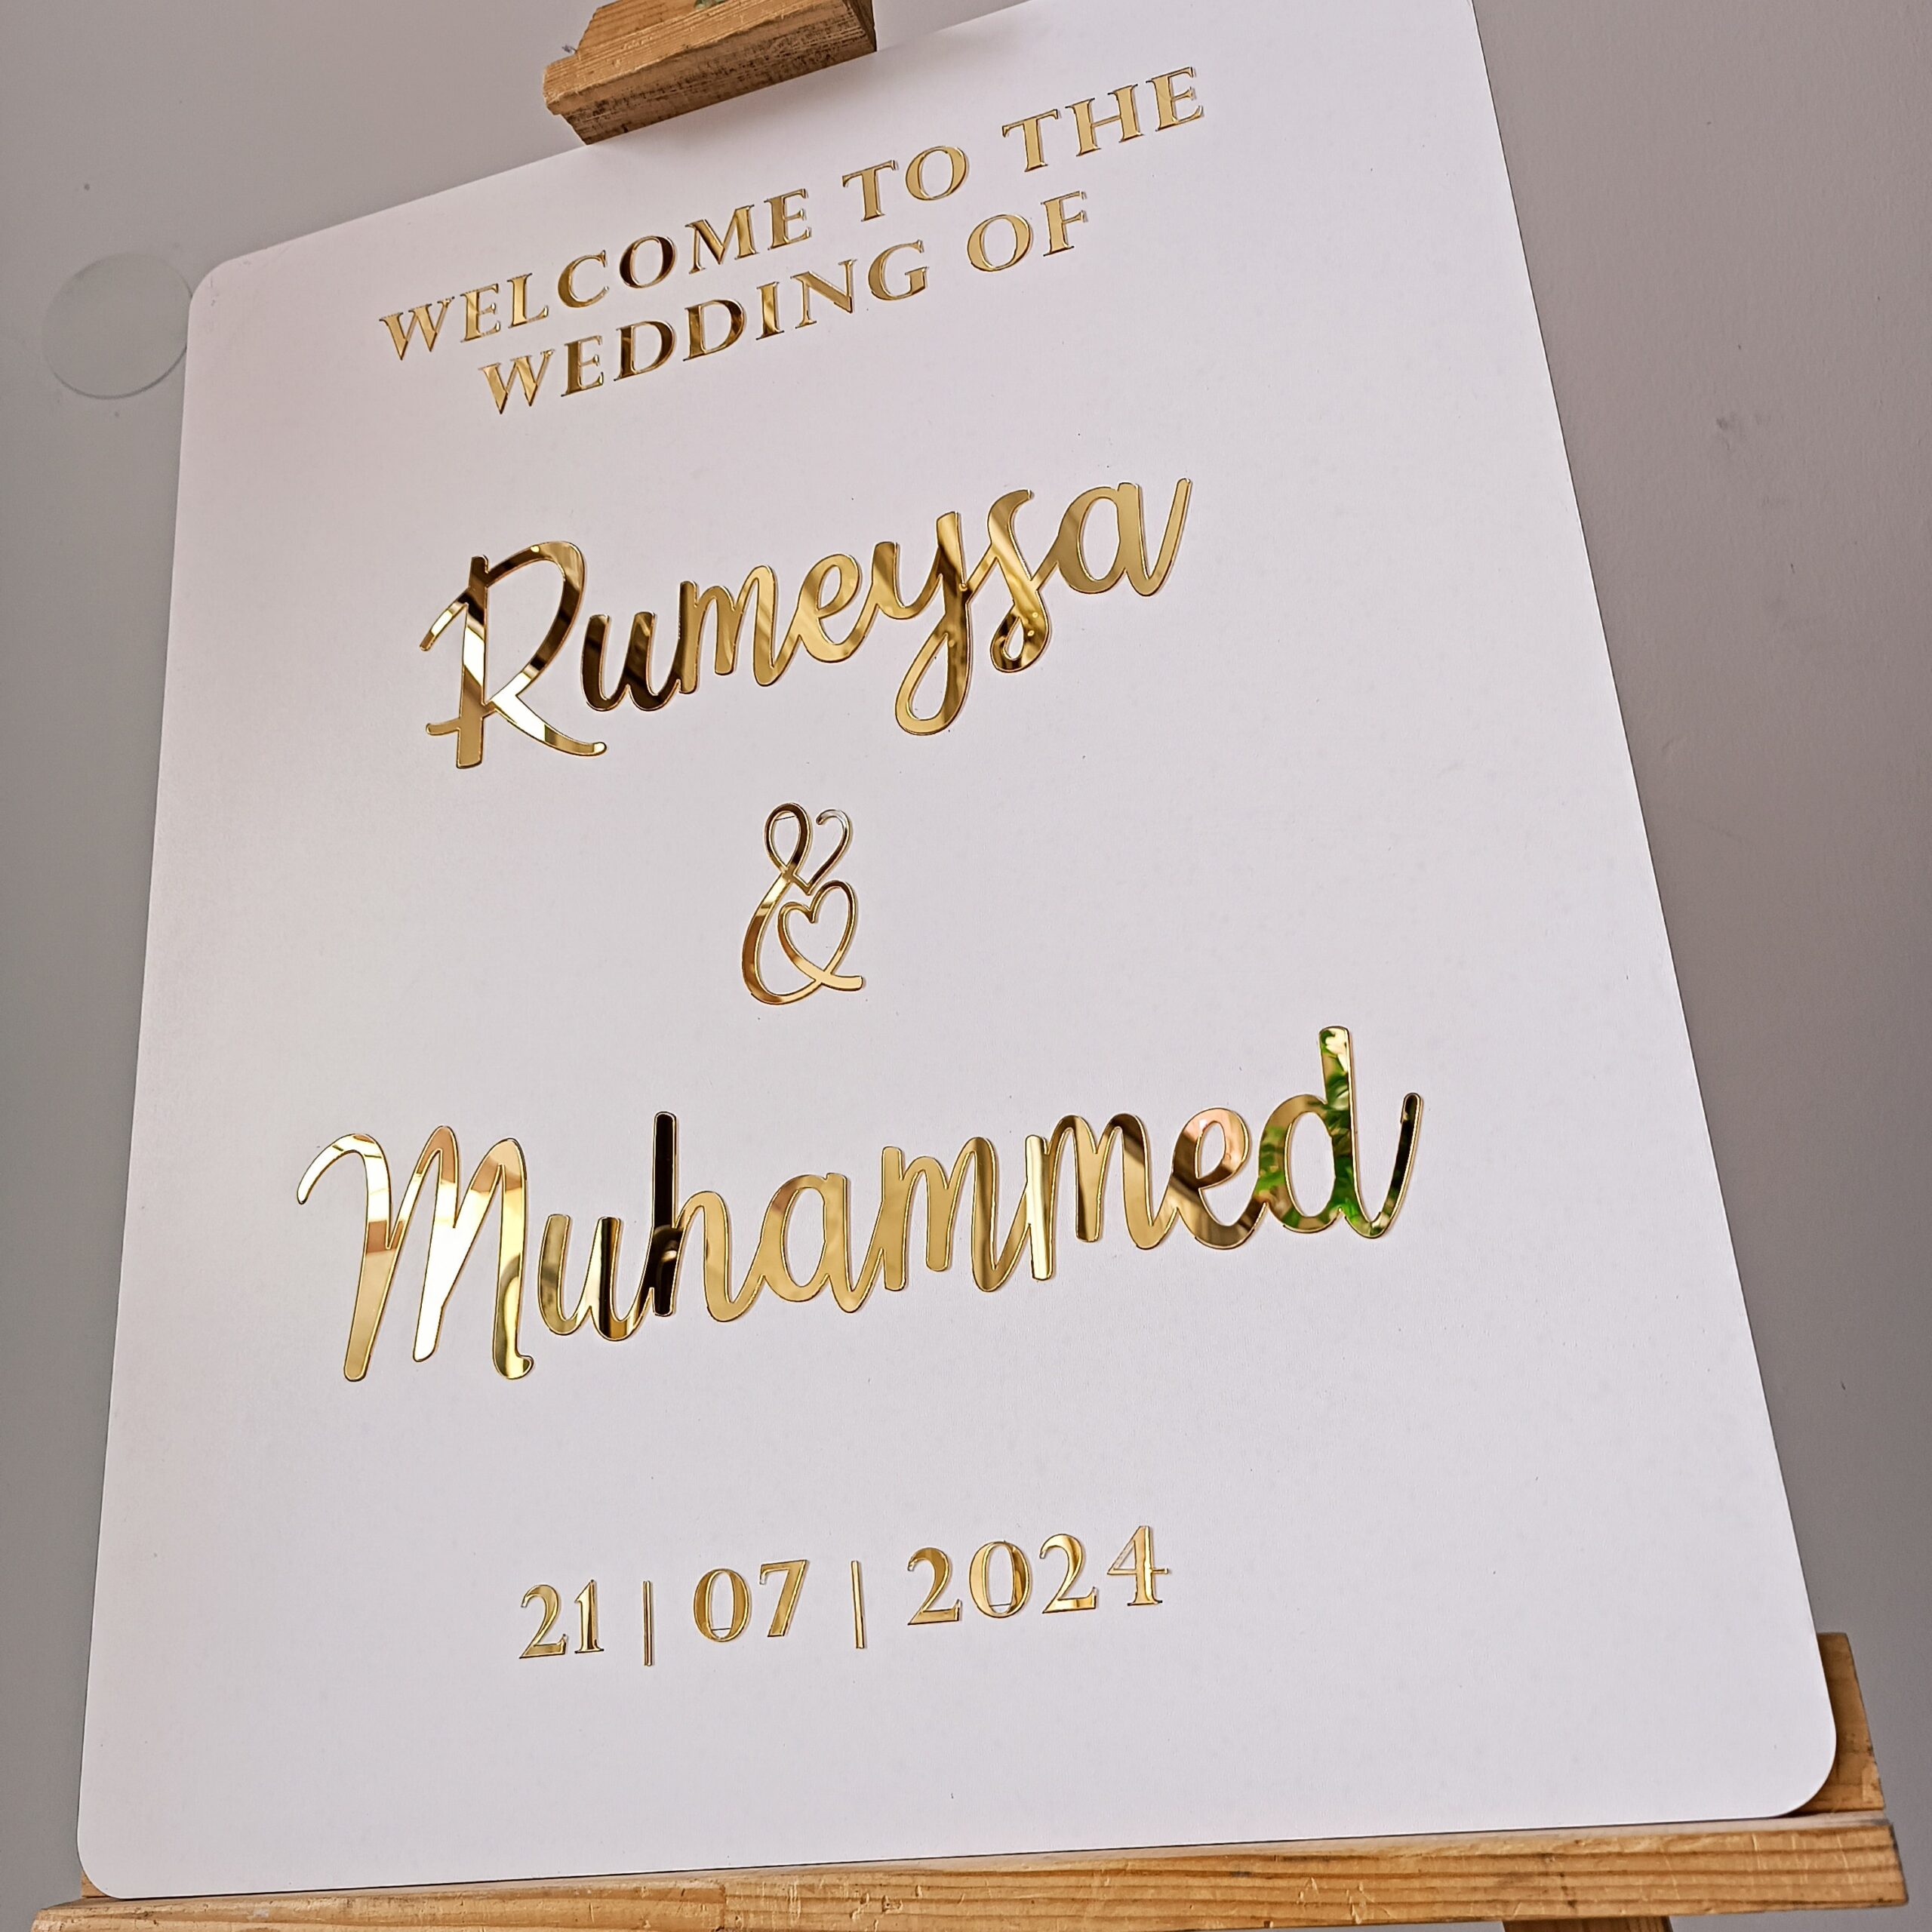 WELCOME TO THE
WEDDING OF
Rumeysa
&
Muhammed
21 | 07 | 2024